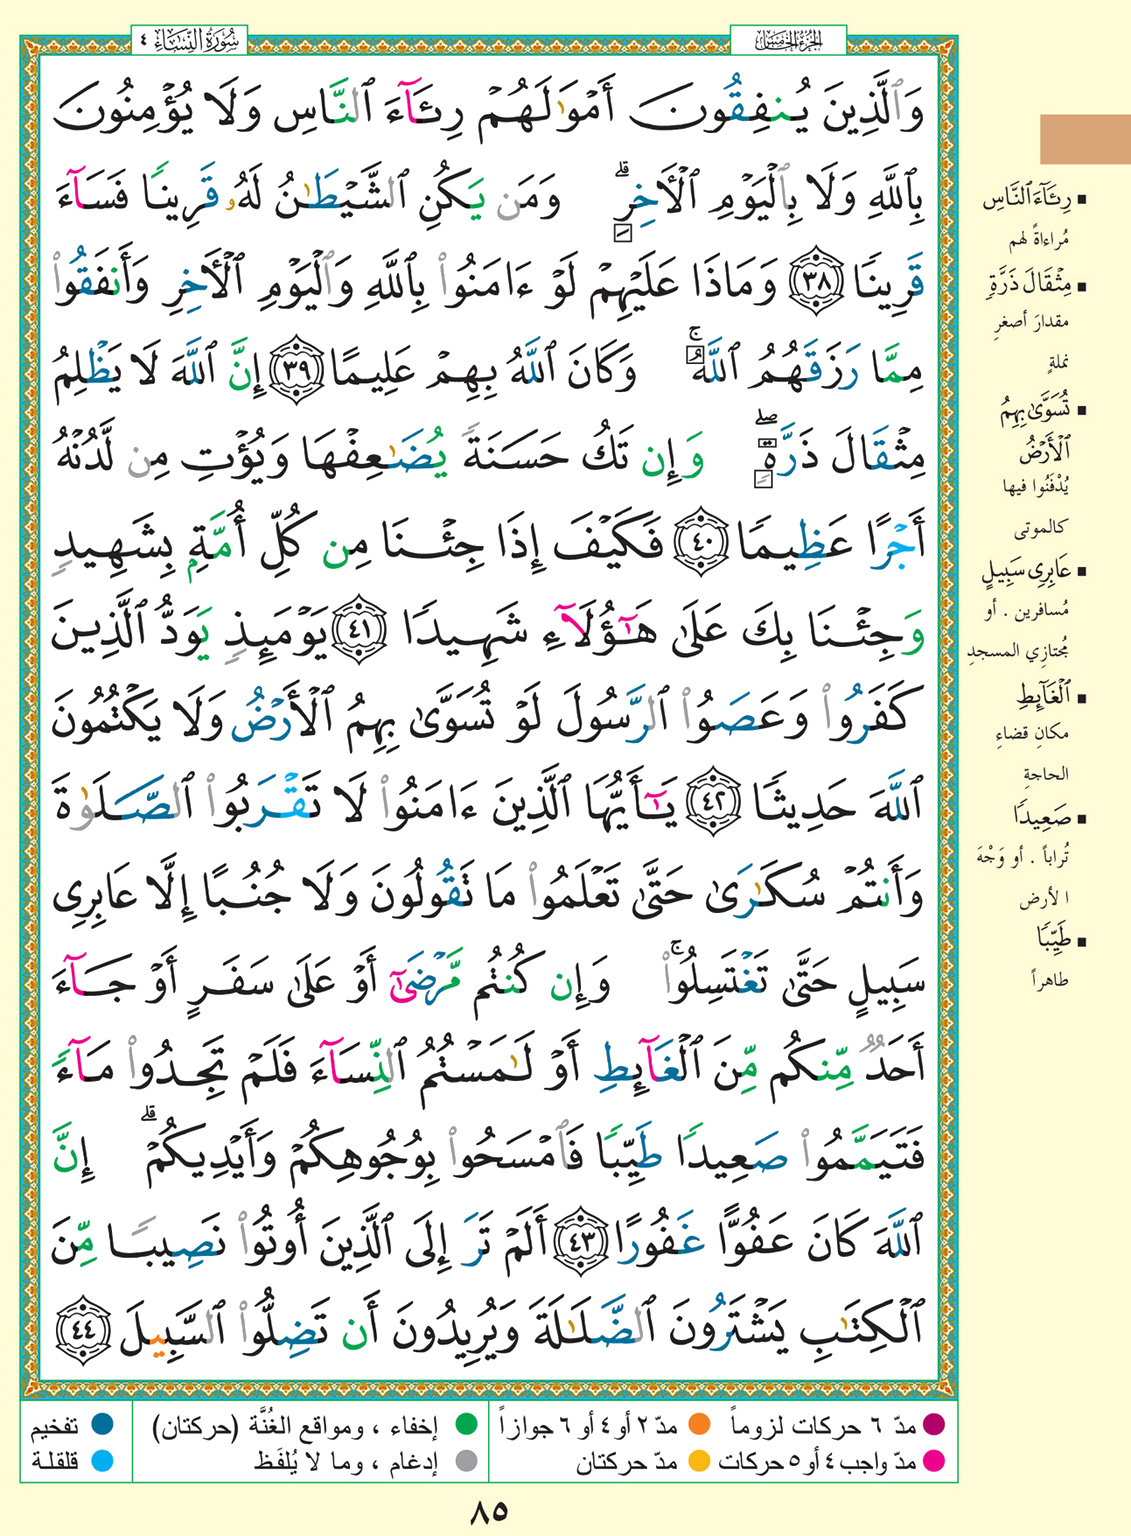 الجزء الخامس
سُورَةُ النِّسَاءِ ٤
وَٱلَّذِينَ يُنفِقُونَ أَمْوَٰلَهُمْ رِئَآءَ ٱلنَّاسِ وَلَا يُؤْمِنُونَ
بِٱللَّهِ وَلَا بِٱلْيَوْمِ ٱلْأَخِرِ ۗ وَمَن يَكُنِ ٱلشَّيْطَٰنُ لَهُۥ قَرِينًا فَسَآءَ
قَرِينًا ٣٨ وَمَاذَا عَلَيْهِمْ لَوْ ءَامَنُوا۟ بِٱللَّهِ وَٱلْيَوْمِ ٱلْأَخِرِ وَأَنفَقُوا۟
مِمَّا رَزَقَهُمُ ٱللَّهُ ۚ وَكَانَ ٱللَّهُ بِهِمْ عَلِيمًا ٣٩ إِنَّ ٱللَّهَ لَا يَظْلِمُ
مِثْقَالَ ذَرَّةٍ ۖ وَإِن تَكُ حَسَنَةً يُضَٰعِفْهَا وَيُؤْتِ مِن لَّدُنْهُ
أَجْرًا عَظِيمًا ٤٠ فَكَيْفَ إِذَا جِئْنَا مِن كُلِّ أُمَّةٍۭ بِشَهِيدٍ
وَجِئْنَا بِكَ عَلَىٰ هَٰٓؤُلَآءِ شَهِيدًا ٤١ يَوْمَئِذٍ يَوَدُّ ٱلَّذِينَ
كَفَرُوا۟ وَعَصَوُا۟ ٱلرَّسُولَ لَوْ تُسَوَّىٰ بِهِمُ ٱلْأَرْضُ وَلَا يَكْتُمُونَ
ٱللَّهَ حَدِيثًا ٤٢ يَٰٓأَيُّهَا ٱلَّذِينَ ءَامَنُوا۟ لَا تَقْرَبُوا۟ ٱلصَّلَوٰةَ
وَأَنتُمْ سُكَٰرَىٰ حَتَّىٰ تَعْلَمُوا۟ مَا تَقُولُونَ وَلَا جُنُبًا إِلَّا عَابِرِى
سَبِيلٍ حَتَّىٰ تَغْتَسِلُوا۟ ۚ وَإِن كُنتُم مَّرْضَىٰٓ أَوْ عَلَىٰ سَفَرٍ أَوْ جَآءَ
أَحَدٌ مِّنكُم مِّنَ ٱلْغَآئِطِ أَوْ لَٰمَسْتُمُ ٱلنِّسَآءَ فَلَمْ تَجِدُوا۟ مَآءً
فَتَيَمَّمُوا۟ صَعِيدًا طَيِّبًا فَٱمْسَحُوا۟ بِوُجُوهِكُمْ وَأَيْدِيكُمْ ۗ إِنَّ
ٱللَّهَ كَانَ عَفُوًّا غَفُورًا ٤٣ أَلَمْ تَرَ إِلَى ٱلَّذِينَ أُوتُوا۟ نَصِيبًا مِّنَ
ٱلْكِتَٰبِ يَشْتَرُونَ ٱلضَّلَٰلَةَ وَيُرِيدُونَ أَن تَضِلُّوا۟ ٱلسَّبِيلَ ٤٤
رِئَآءَ ٱلنَّاسِ
مُراءاةً لهم
مِثْقَالَ ذَرَّةٍ
مقدارَ أصغرِ
نملةٍ
تُسَوَّىٰ بِهِمُ
ٱلْأَرْضُ
يُدْفَنُوا فيها
كالموتى
عَابِرِى سَبِيلٍ
مُسافرين . أو
مُجتازي المسجدِ
ٱلْغَآئِطِ
مكانِ قضاءِ
الحاجةِ
صَعِيدًا
تُراباً . أو وَجْهَ
الأرض
طَيِّبًا
طاهراً
مدّ ٦ حركات لزوماً مدّ ٢ أو ٤ أو ٦ جوازاً
مدّ واجب ٤ أو ٥ حركات مدّ حركتان
إخفاء ، ومواقع الغُنَّة (حركتان)
إدغام ، وما لا يُلفَظ
تفخيم
قلقلة
٨٥